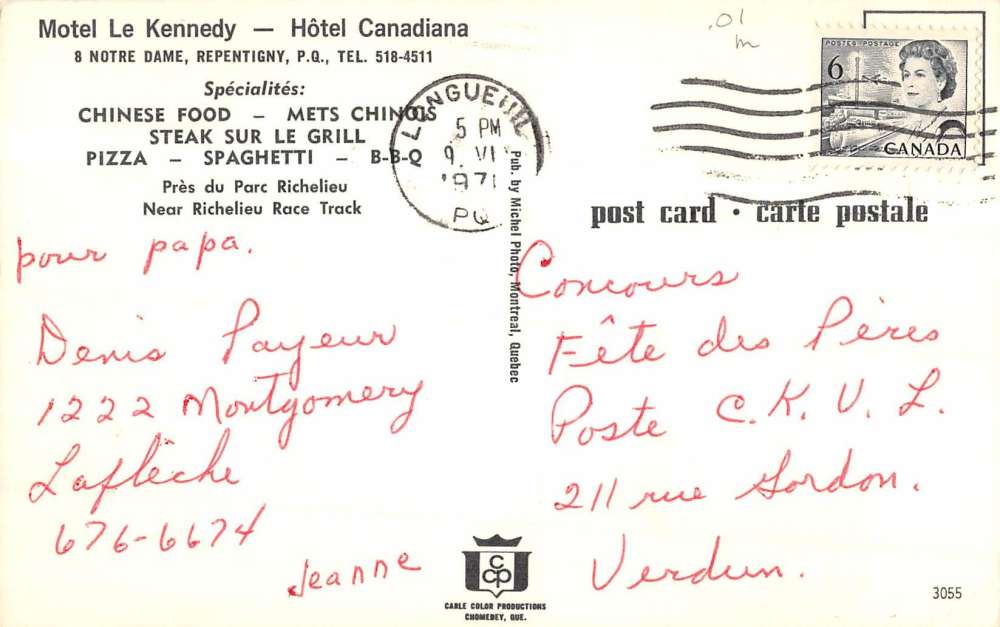 Motel Le Kennedy — Hôtel Canadiana
8 NOTRE DAME, REPENTIGNY, P.Q., TEL. 518-4511
Spécialités:
CHINESE FOOD — METS CHINOIS
STEAK SUR LE GRILL
PIZZA — SPAGHETTI — B-B-Q
Près du Parc Richelieu
Near Richelieu Race Track
pour papa.
Denis Payeur
1222 Montgomery
Laflèche
676-6674
Jeanne
LONGUEUIL
5 PM
9 VI
1971
PQ
Pub. by Michel Photo, Montreal, Quebec
CCP
CARLE COLOR PRODUCTIONS
CHOMEDEY, QUE.
.01
POSTES POSTAGE
6
CANADA
post card • carte postale
Concours
Fête des Pères
Poste C.K.V.L.
211 rue Gordon.
Verdun.
3055